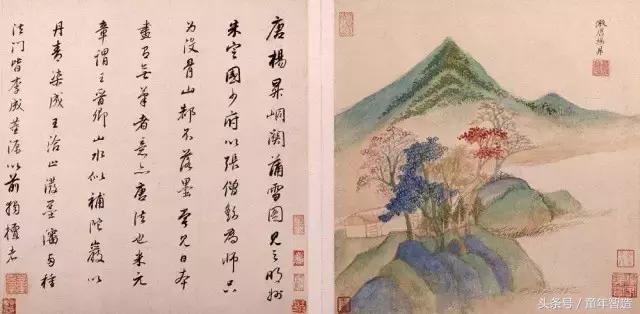 倣唐楊昇
唐楊昇峒関蒲雪圖見之明州
朱定國少府以張僧繇為師只
為没骨山都不落墨曾見日本
畫有無筆者意亦唐法也米元
章謂王晉卿山水似補陀巖以
丹青染成王洽潑墨瀋種
法門皆李成董源以前獨檀者
头条号 / 童年智造